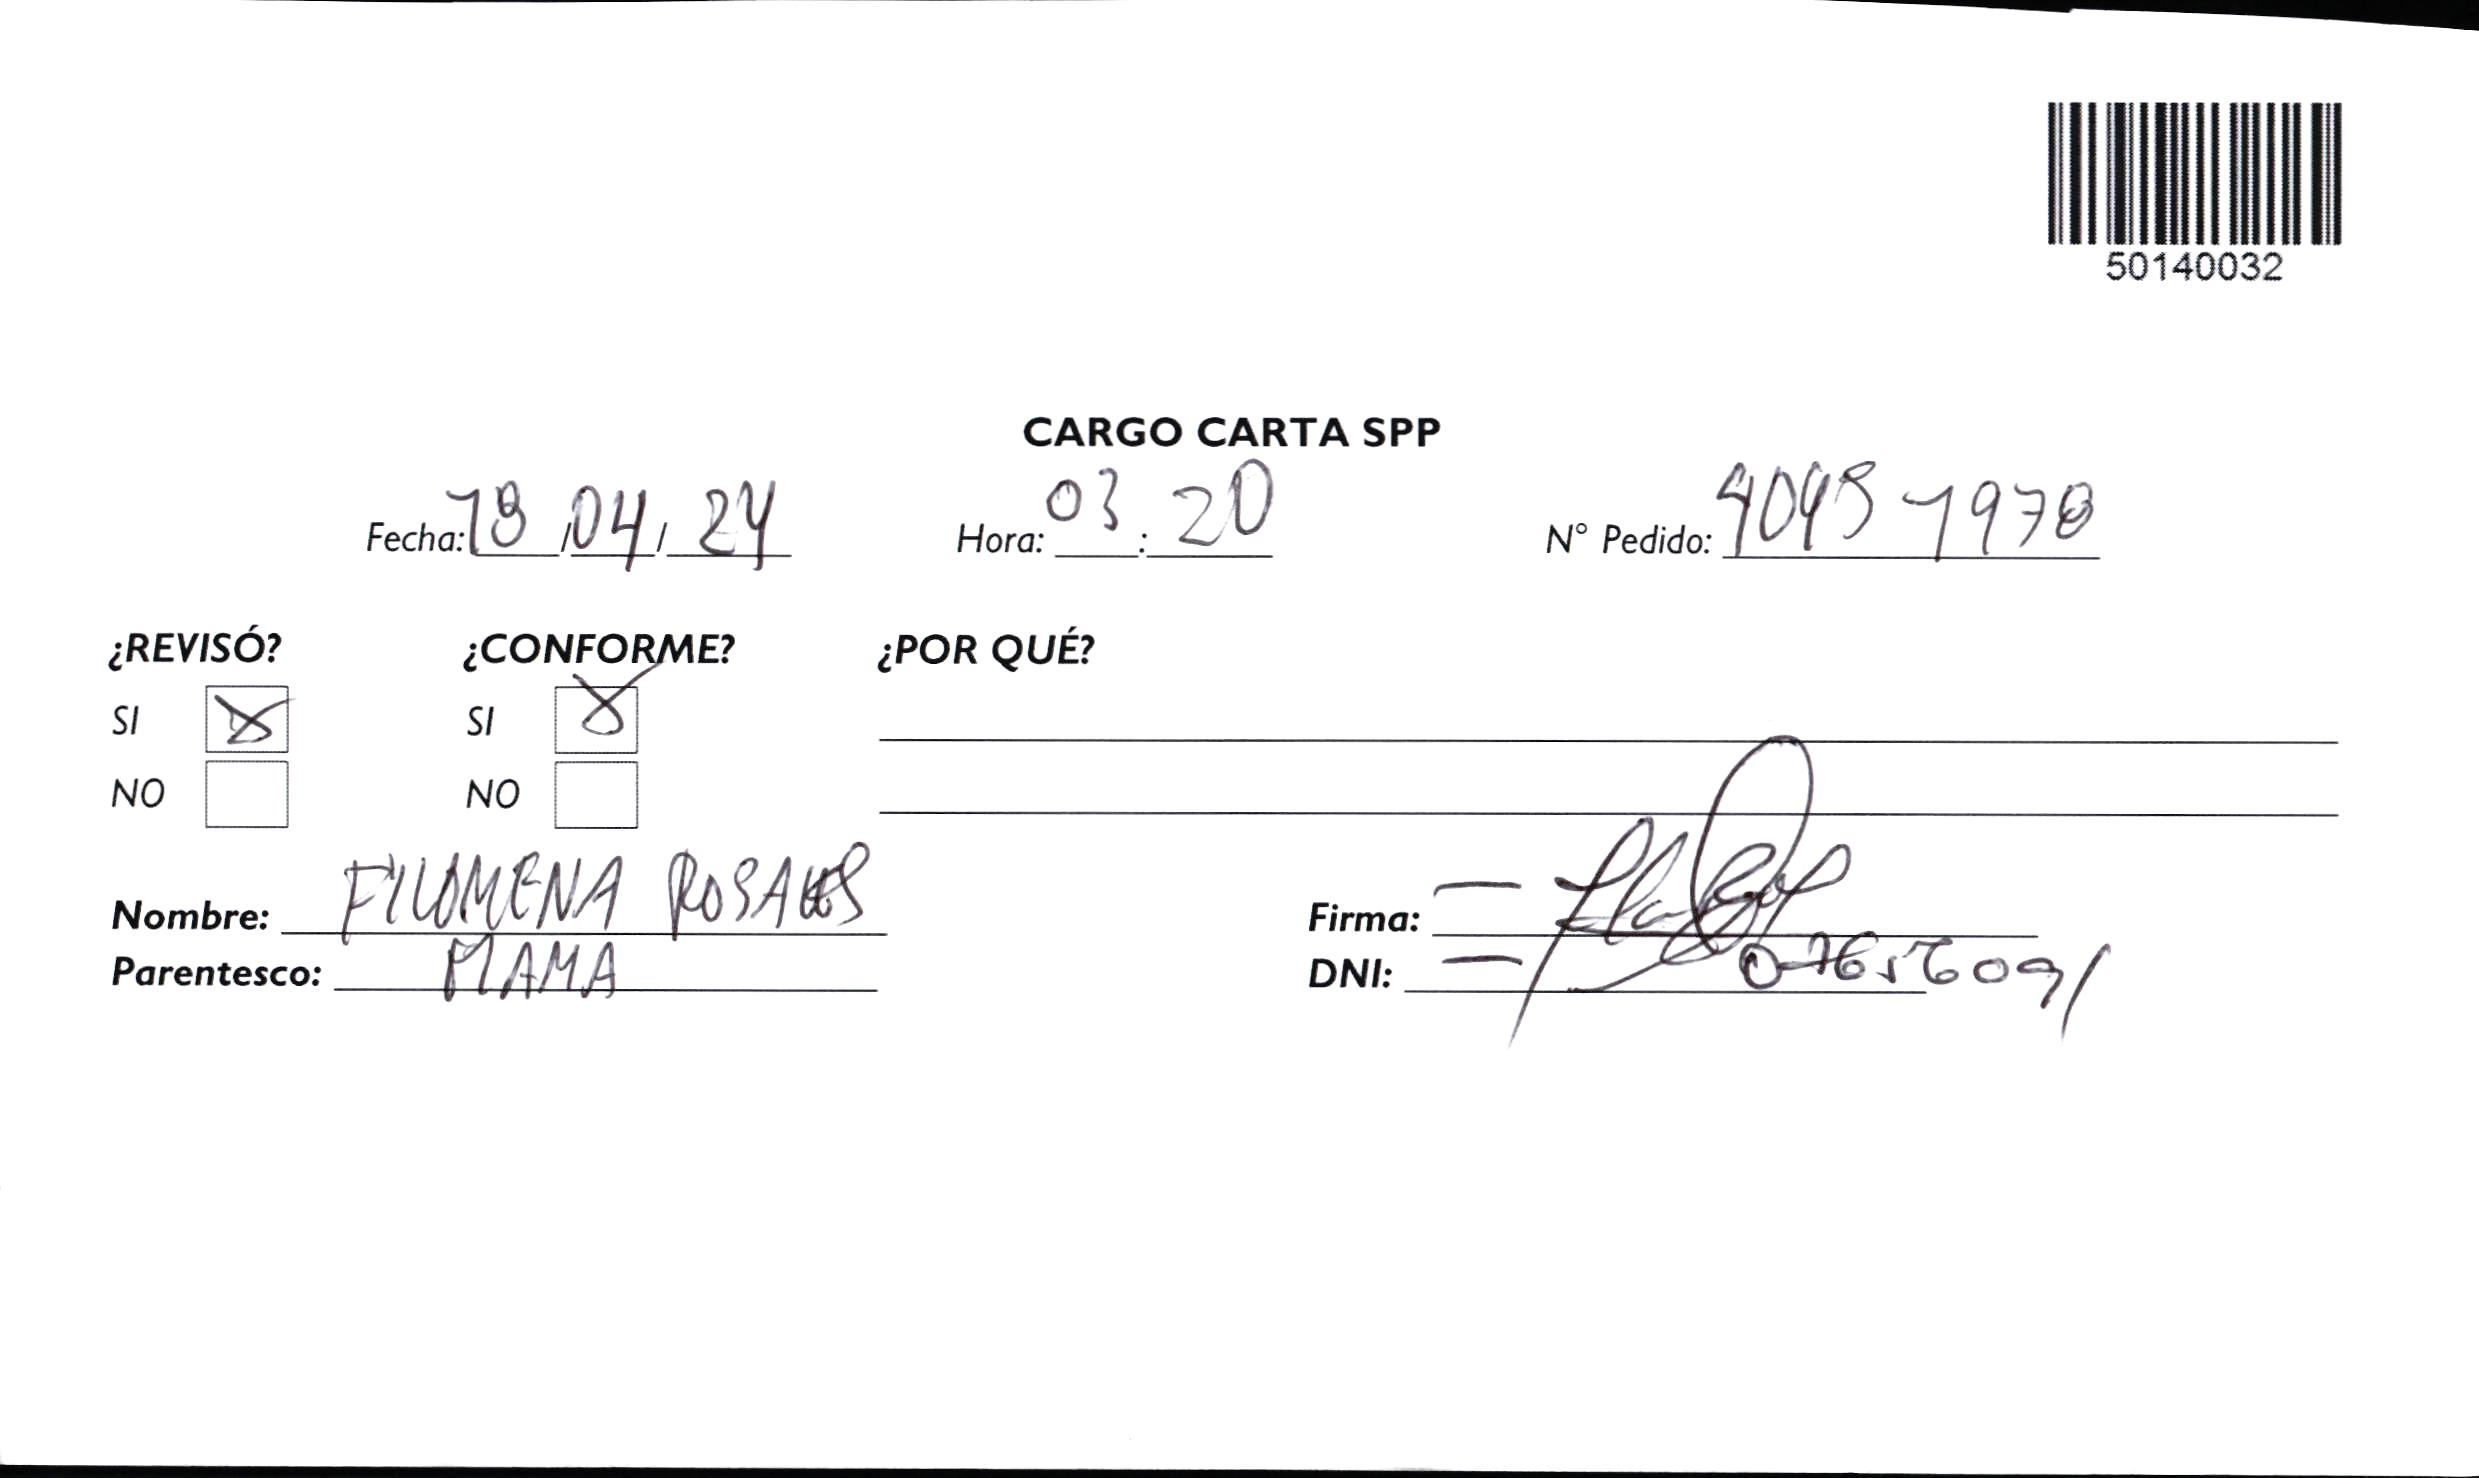 50140032
CARGO CARTA SPP
Fecha: 18/04/24 Hora: 03:20 N° Pedido: 9095-1978
¿REVISÓ? ¿CONFORME? ¿POR QUÉ?
SI SI
NO NO
Nombre: FILOMENA ROSALES Firma:
Parentesco: MAMA DNI: 07656091